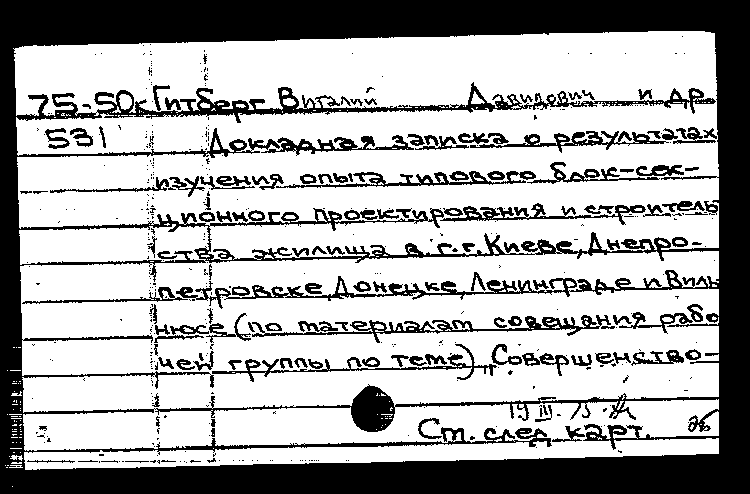 75-50к Гитберг Виталий Давидович и др.
531 Докладная записка о результатах
изучения опыта типового блок-сек-
ционного проектирования и строитель
ства жилища в г.г. Киеве, Днепро-
петровске, Донецке, Ленинграде и Виль
нюсе (по материалам совещания рабо
чей группы по теме) „Совершенство-
19 III. 75
См. след. карт.